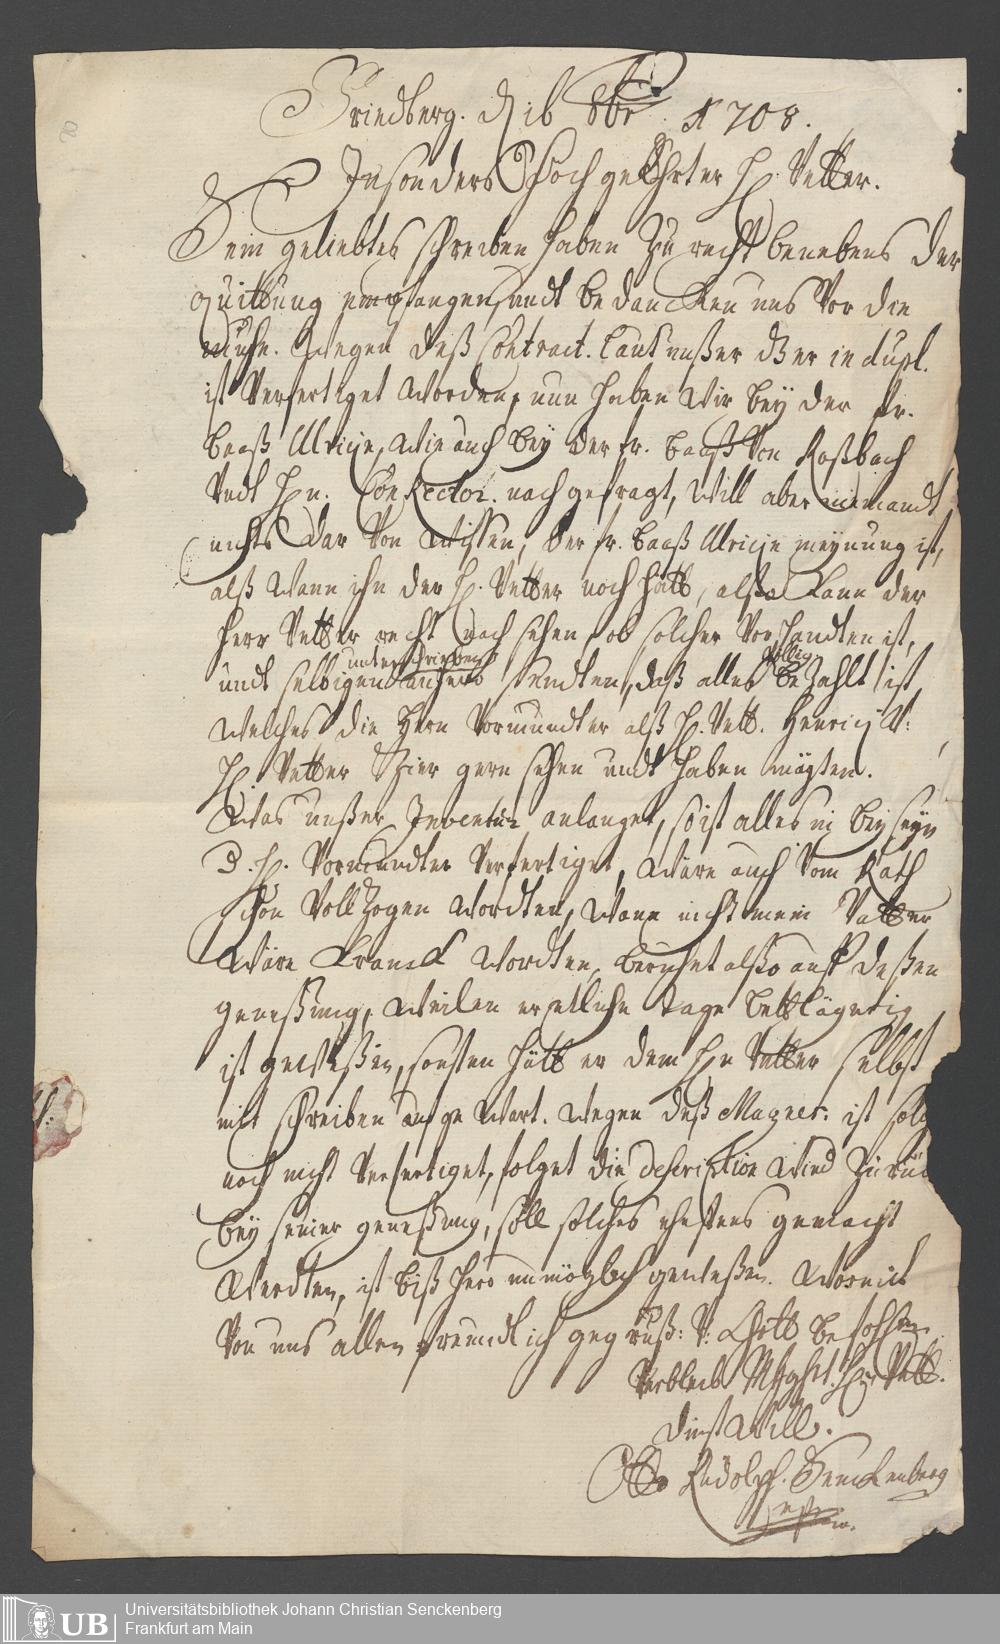 Friedberg. d 16 8br. A 1708.
Insonders Hoch geEhrter H. Vetter.
Dein geliebtes schreiben haben Zu recht benebens der
quittung empfangen, undt bedancken uns Vor die
mühe. Wegen deß Contract. laut unßer der in dupl.
ist Verfertiget Worden, nun haben Wir beÿ der fr.
baaß Ulricin, Wie auch beÿ der fr. baaß Von Roßbach
Undt Hn. ConRector. nachgefragt, Will aber niemandt
nichts dar Von Wissen, der fr. baaß Ulricin meÿnung ist,
alß Wann ihn der H. Vetter noch hätt, alßo kann der
Herr Vetter recht nach sehen, ob solcher Vorhandten ist,
unterschrieben völlig
undt selbigen anhero sendten, daß alles beZahlt ist
Welches die Hern Vormundter alß H. Vett. Henrici V:
H. Vetter gern sehen undt haben mögten.
Was unßer Inventur anlanget, so ist alles in beÿ seÿn
d. H. Vormundter Verfertiget, Wäre auch Vom Rath
schon VollZogen Wordten, Wann nicht mein Vatter
Wäre kranck Wordten, beruhet alßo auff deßen
geneßung, Weilen er etliche tage bettlägerig
ist geweßen, sonsten hätt er dem Hn Vetter selbst
mit schreiben aufgeWart. Wegen deß Magner: ist solc
noch nicht Verfertiget, folget die description Zurüc
beÿ seiner geneßung, soll solches ehestens gemacht
Werdten, ist biß hero unmöglich geweßen. Womit
Von uns allen freundlich gegrüß: V: Gott befohlen
Verbleibe Hn Vett.
dienstWill.
Otto Rudolph. Senckenberg
Universitätsbibliothek Johann Christian Senckenberg
Frankfurt am Main
UB